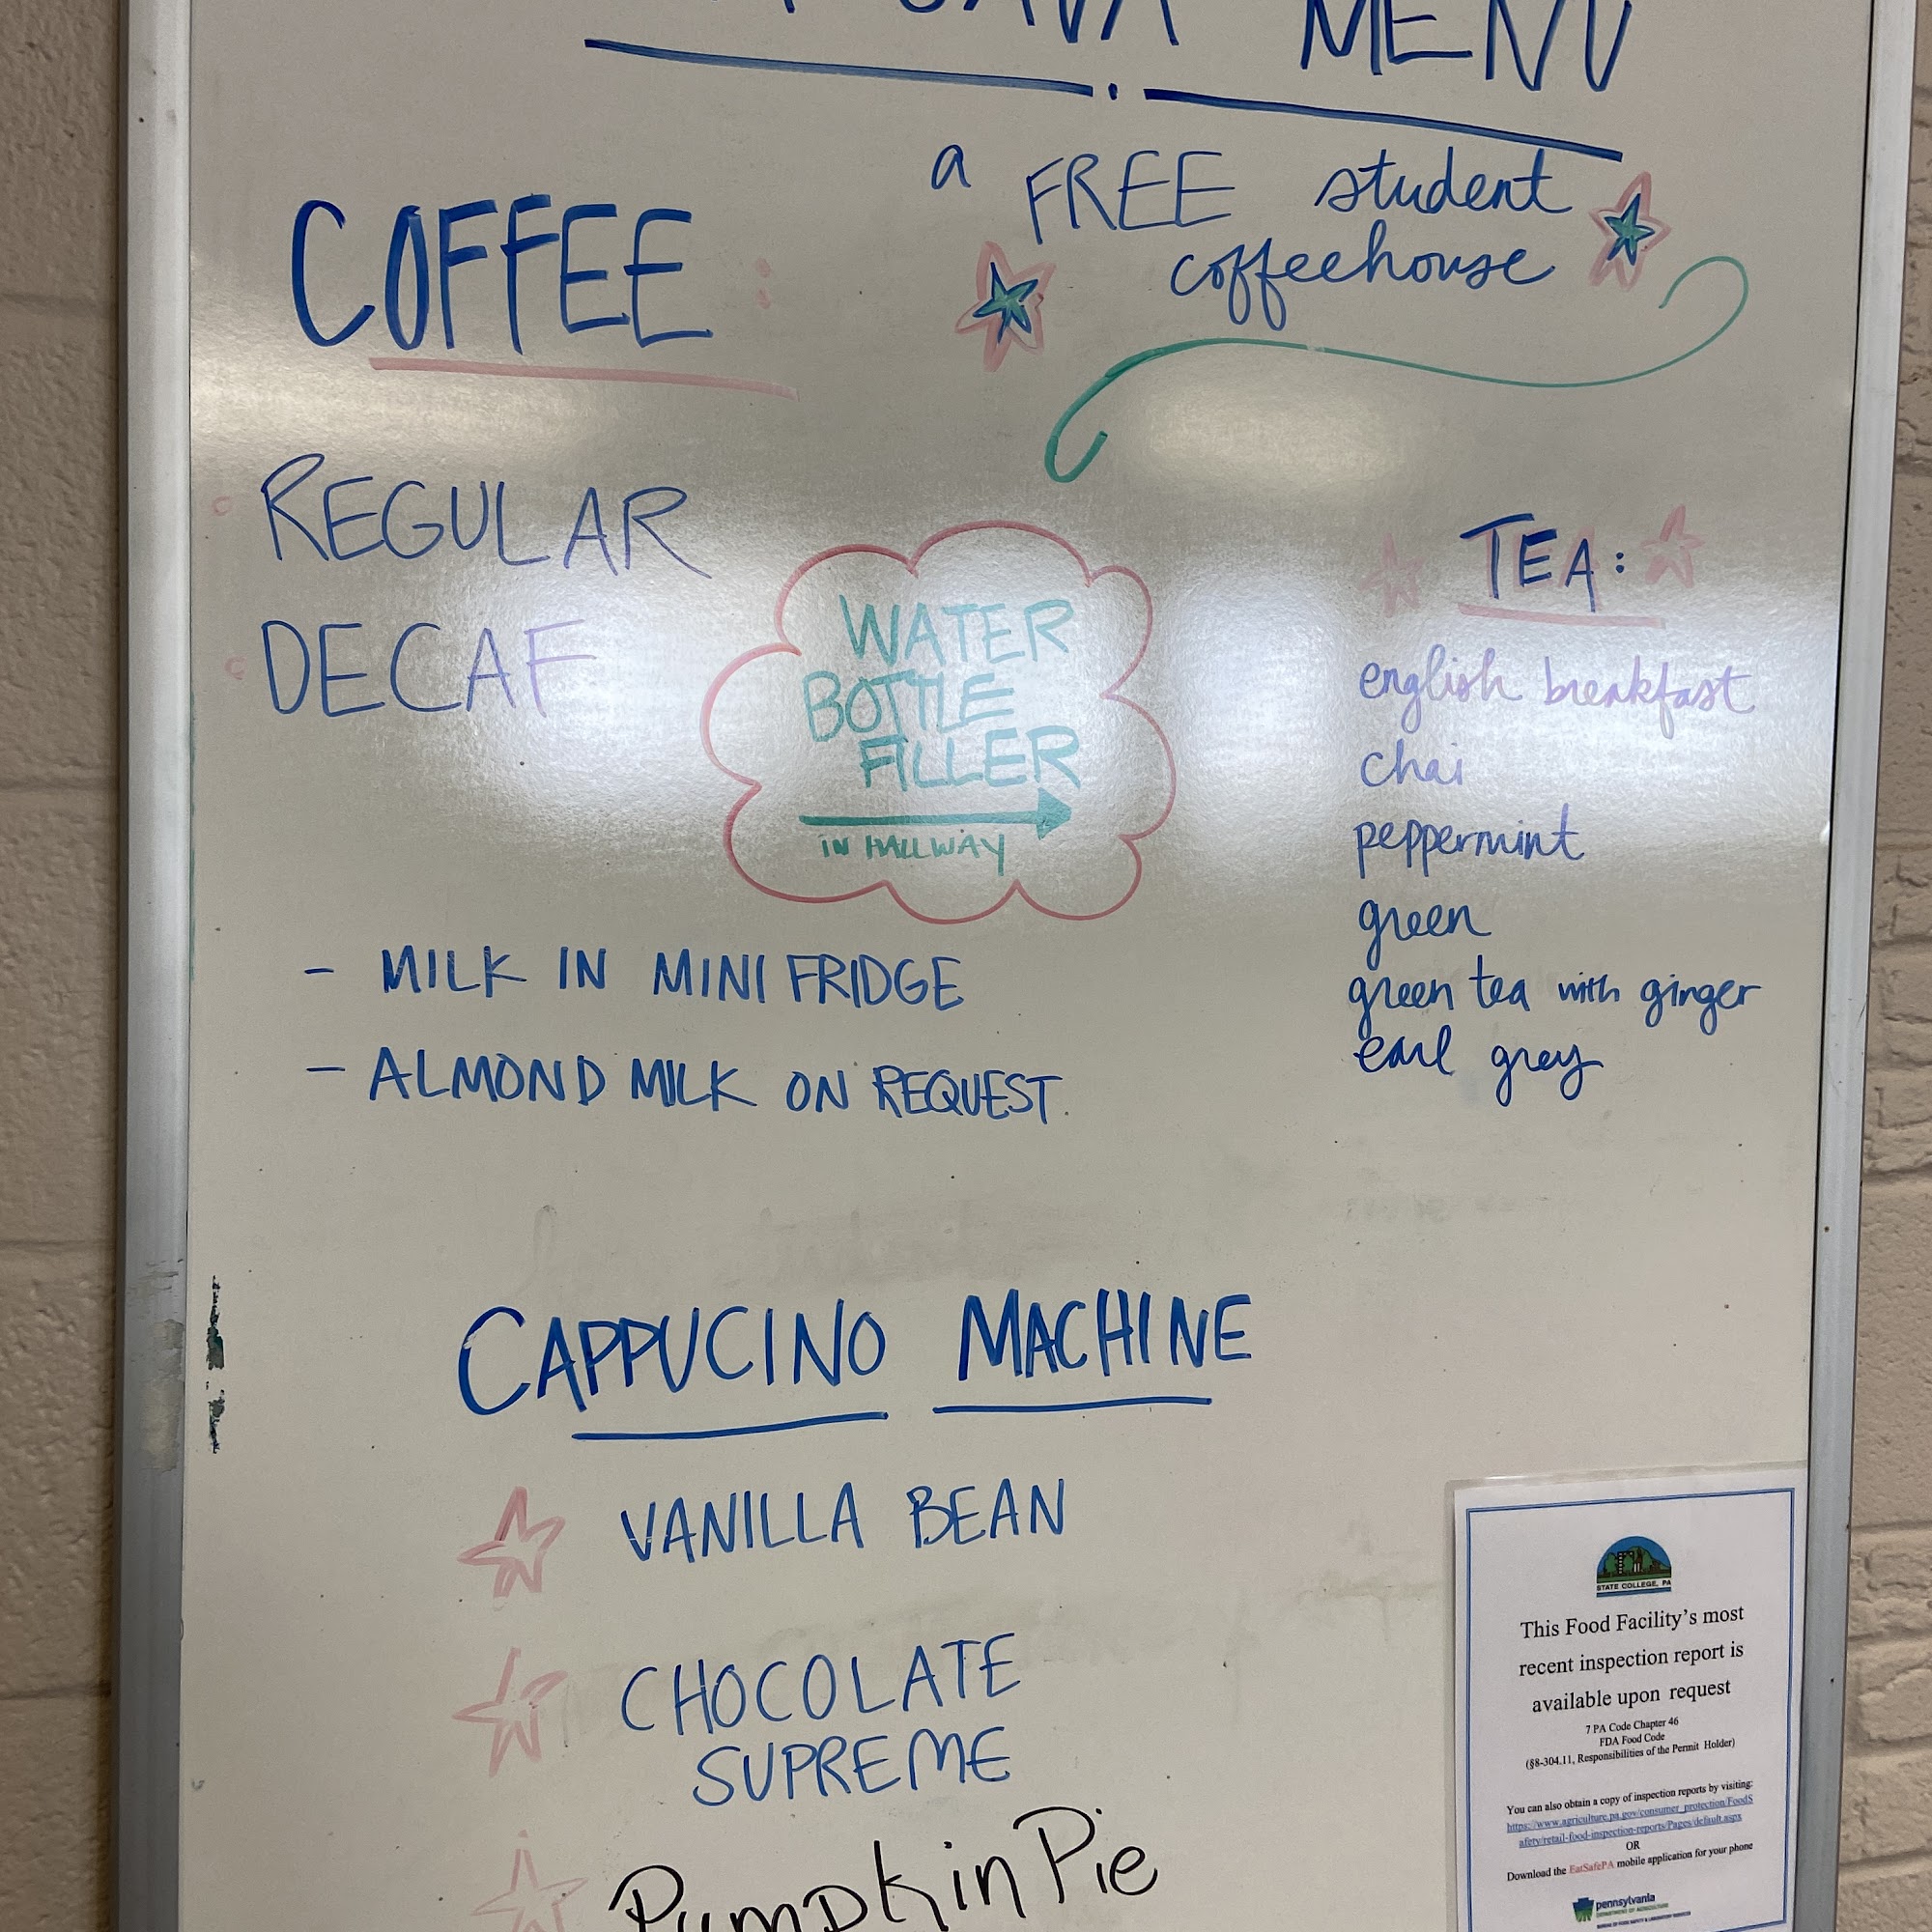 JAVA MENU
a FREE student
coffeehouse
COFFEE:
REGULAR
DECAF
WATER
BOTTLE
FILLER
IN HALLWAY
TEA:
english breakfast
chai
peppermint
green
green tea with ginger
earl grey
- MILK IN MINI FRIDGE
- ALMOND MILK ON REQUEST.
CAPPUCINO MACHINE
VANILLA BEAN
CHOCOLATE
SUPREME
Pumpkin Pie
STATE COLLEGE, PA
This Food Facility's most
recent inspection report is
available upon request
7 PA Code Chapter 46
FDA Food Code
(§8-304.11, Responsibilities of the Permit Holder)
You can also obtain a copy of inspection reports by visiting:
https://www.agriculture.pa.gov/consumer_protection/FoodS
afety/retail-food-inspection-reports/Pages/default.aspx
OR
Download the EatSafePA mobile application for your phone
pennsylvania
DEPARTMENT OF AGRICULTURE
BUREAU OF FOOD SAFETY & LABORATORY SERVICES